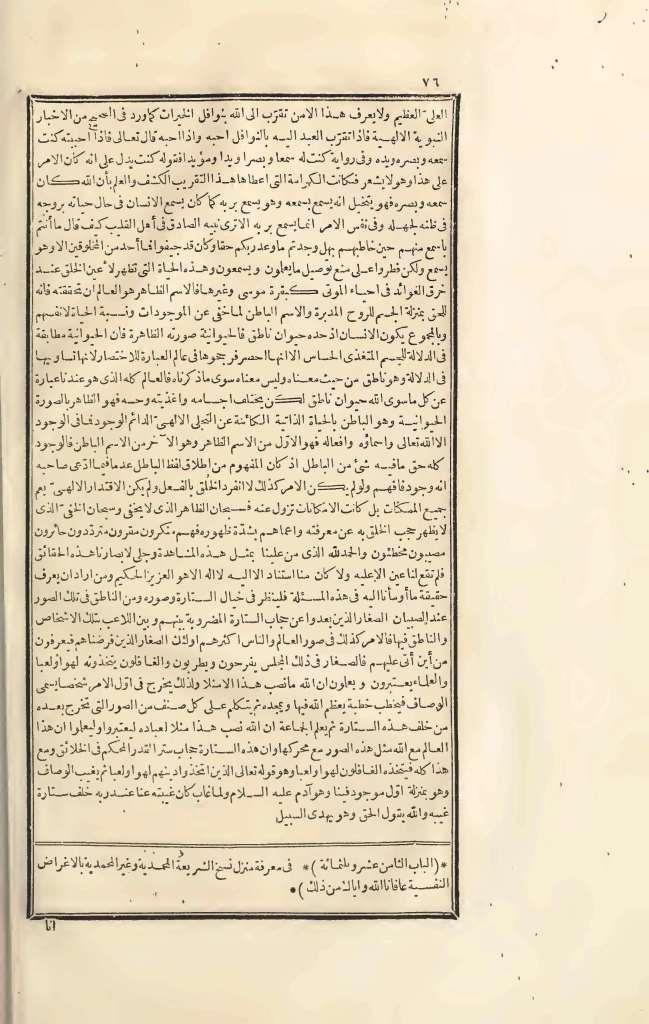 ٧٦
العلى العظيم ولا يعرف هذا الا من تقرب الى الله بنوافل الخيرات كما ورد فى الصحيح من الاخبار
النبوية الالهية فاذا تقرب العبد اليه بالنوافل احبه واذا احبه قال تعالى فاذا أحببته كنت
سمعه وبصره ويده وفى رواية كنت له سمعا وبصرا ويدا ومؤيدا فقوله كنت يدل على انه كان الامر
على هذا وهو لا يشعر فكانت الكرامة التى اعطاها هذا التقريب الكشف والعلم بأن الله كان
سمعه وبصره فهو يتخيل انه يسمع بسمعه وهو يسمع بربه كما كان يسمع الانسان فى حال حياته بروحه
فى ظنه لجهله وفى نفس الامر انما يسمع بربه الا ترى نبيه الصادق فى أهل القليب كيف قال ما أنتم
بأسمع منهم حين خاطبهم بهل وجدتم ما وعد ربكم حقا وكان قد جيفوا فما أحد من المخلوقين الا وهو
يسمع ولكن فطروا على منع توصيل ما يعلمون ويسمعون وهذه الحياة التى تظهر لأعين الخلق عند
خرق العوائد فى احياء الموتى كبقرة موسى وغيرها فالاسم الظاهر هو العالم ان تحققته فانه
للحق بمنزلة الجسم للروح المدبرة والاسم الباطن لما خفى عن الموجودات ونسبة الحياة لانفسهم
وبالمجموع يكون الانسان اذ حده حيوان ناطق فالحيوانية صورته الظاهرة فان الحيوانية مطابقة
فى الدلالة للجسم المتغذى الحساس الا انها أحصر فرجحوها فى عالم العبارة للاختصار لانها تساويها
فى الدلالة وهو ناطق من حيث معناه وليس معناه سوى ما ذكرناه فالعالم كله الذى هو عندنا عبارة
عن كل ما سوى الله حيوان ناطق لكن يختلف اجسامه واغذيته وحسه فهو الظاهر بالصورة
الحيوانية وهو الباطن بالحياة الذاتية الكائنة عن التجلى الالهى الدائم الوجود فما فى الوجود
الا الله تعالى واسماؤه وافعاله فهو الاول من الاسم الظاهر وهو الآخر من الاسم الباطن فالوجود
كله حق ما فيه شئ من الباطل اذ كان المفهوم من اطلاق لفظ الباطل عدما فيما ادعى صاحبه
انه وجود فافهم ولو لم يكن الامر كذلك لا انفرد الخلق بالفعل ولم يكن الاقتدار الالهى يعم
جميع الممكنات بل كانت الامكانات تزول عنه فسبحان الظاهر الذى لا يخفى وسبحان الخفى الذى
لا يظهر حجب الخلق به عن معرفته واعماهم بشدة ظهوره فهم منكرون مقرون مترددون حائرون
مصيبون مخطئون والحمد لله الذى من علينا بمثل هذه المشاهدة وجلى لابصارنا هذه الحقائق
فلم تقع لنا عين الا عليه ولا كان منا استناد الا اليه لا اله الا هو العزيز الحكيم ومن اراد ان يعرف
حقيقة ما أومأنا اليه فى هذه المسئلة فلينظر فى خيال الستارة وصوره ومن الناطق فى تلك الصور
عند الصبيان الصغار الذين بعدوا عن حجاب الستارة المضروبة بينهم وبين اللاعب بتلك الاشخاص
والناطق فيها فالامر كذلك فى صور العالم والناس اكثرهم اولئك الصغار الذين فرضناهم فيعرفون
من أين أتى عليهم فالصغار فى ذلك المجلس يفرحون ويطربون والغافلون يتخذونه لهوا ولعبا
والعلماء يعتبرون ويعلمون ان الله ما نصب هذا الا مثلا ولذلك يخرج فى اول الامر شخصا يسمى
الوصاف فيخطب خطبة يعظم الله فيها ويمجده ثم يتكلم على كل صنف من الصور التى تخرج بعده
من خلف هذه الستارة ثم يعلم الجماعة ان الله نصب هذا مثلا لعباده ليعتبروا وليعلموا ان هذا
العالم مع الله مثل هذه الصور مع محركها وان هذه الستارة حجاب ستر القدر المحكم فى الخلائق ومع
هذا كله فيتخذه الغافلون لهوا ولعبا وهو قوله تعالى الذين اتخذوا دينهم لهوا ولعبا ثم يغيب الوصاف
وهو بمنزلة اول موجود فينا وهو آدم عليه السلام ولما غاب كان غيبته عنا عند ربه خلف ستارة
غيبه والله يقول الحق وهو يهدى السبيل
*(الباب الثامن عشر وثلثمائة)* فى معرفة منزل نسخ الشريعة المحمدية وغير المحمدية بالاغراض
النفسية عافانا الله واياك من ذلك)*
انا